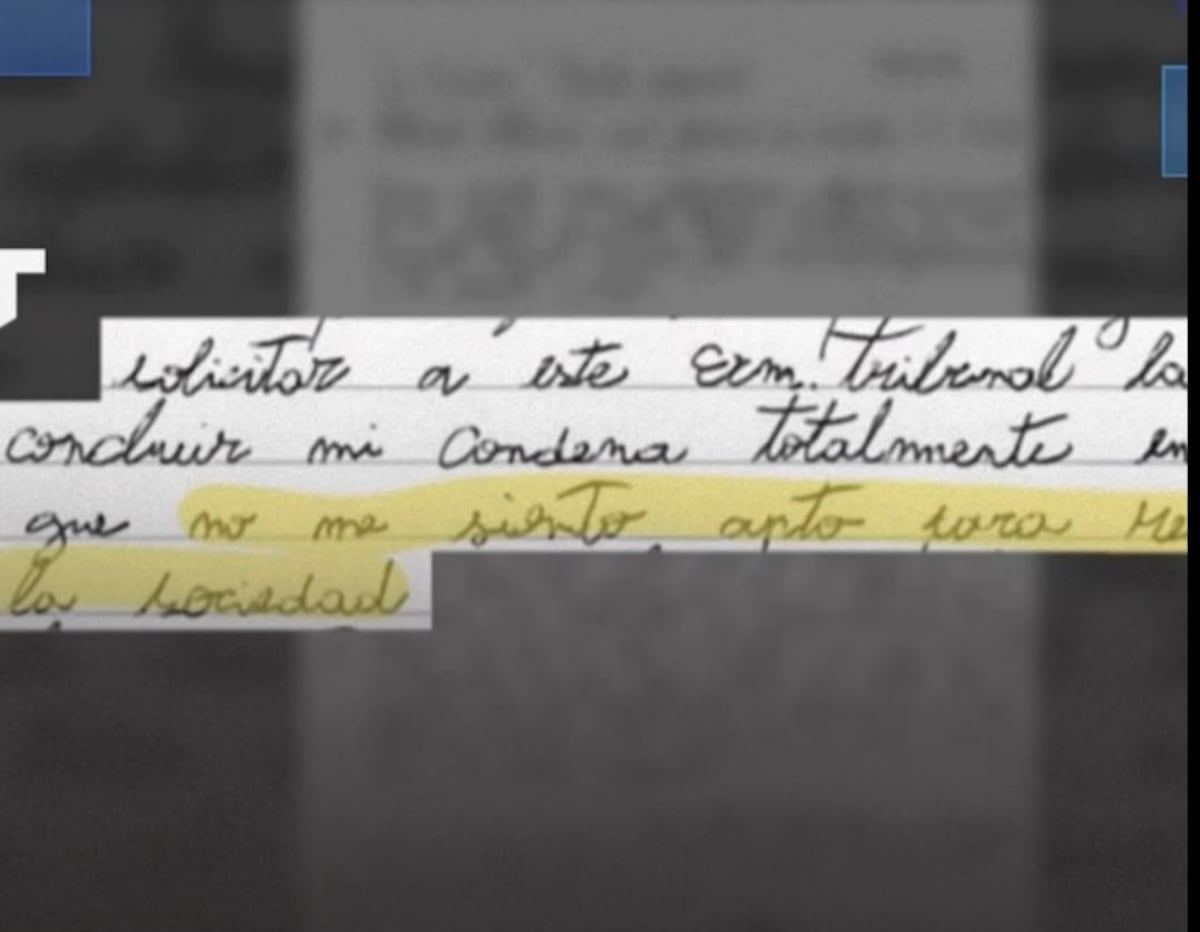 solicitar a este Exm. Tribunal la
concluir mi Condena totalmmente en
que no me siento apto para re
la sociedad